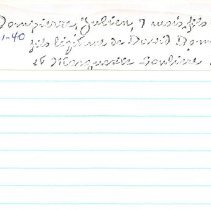 Dompierre, Julien, 7 mois, fils
1-40 fils légitime de David Dom
et Marguerite